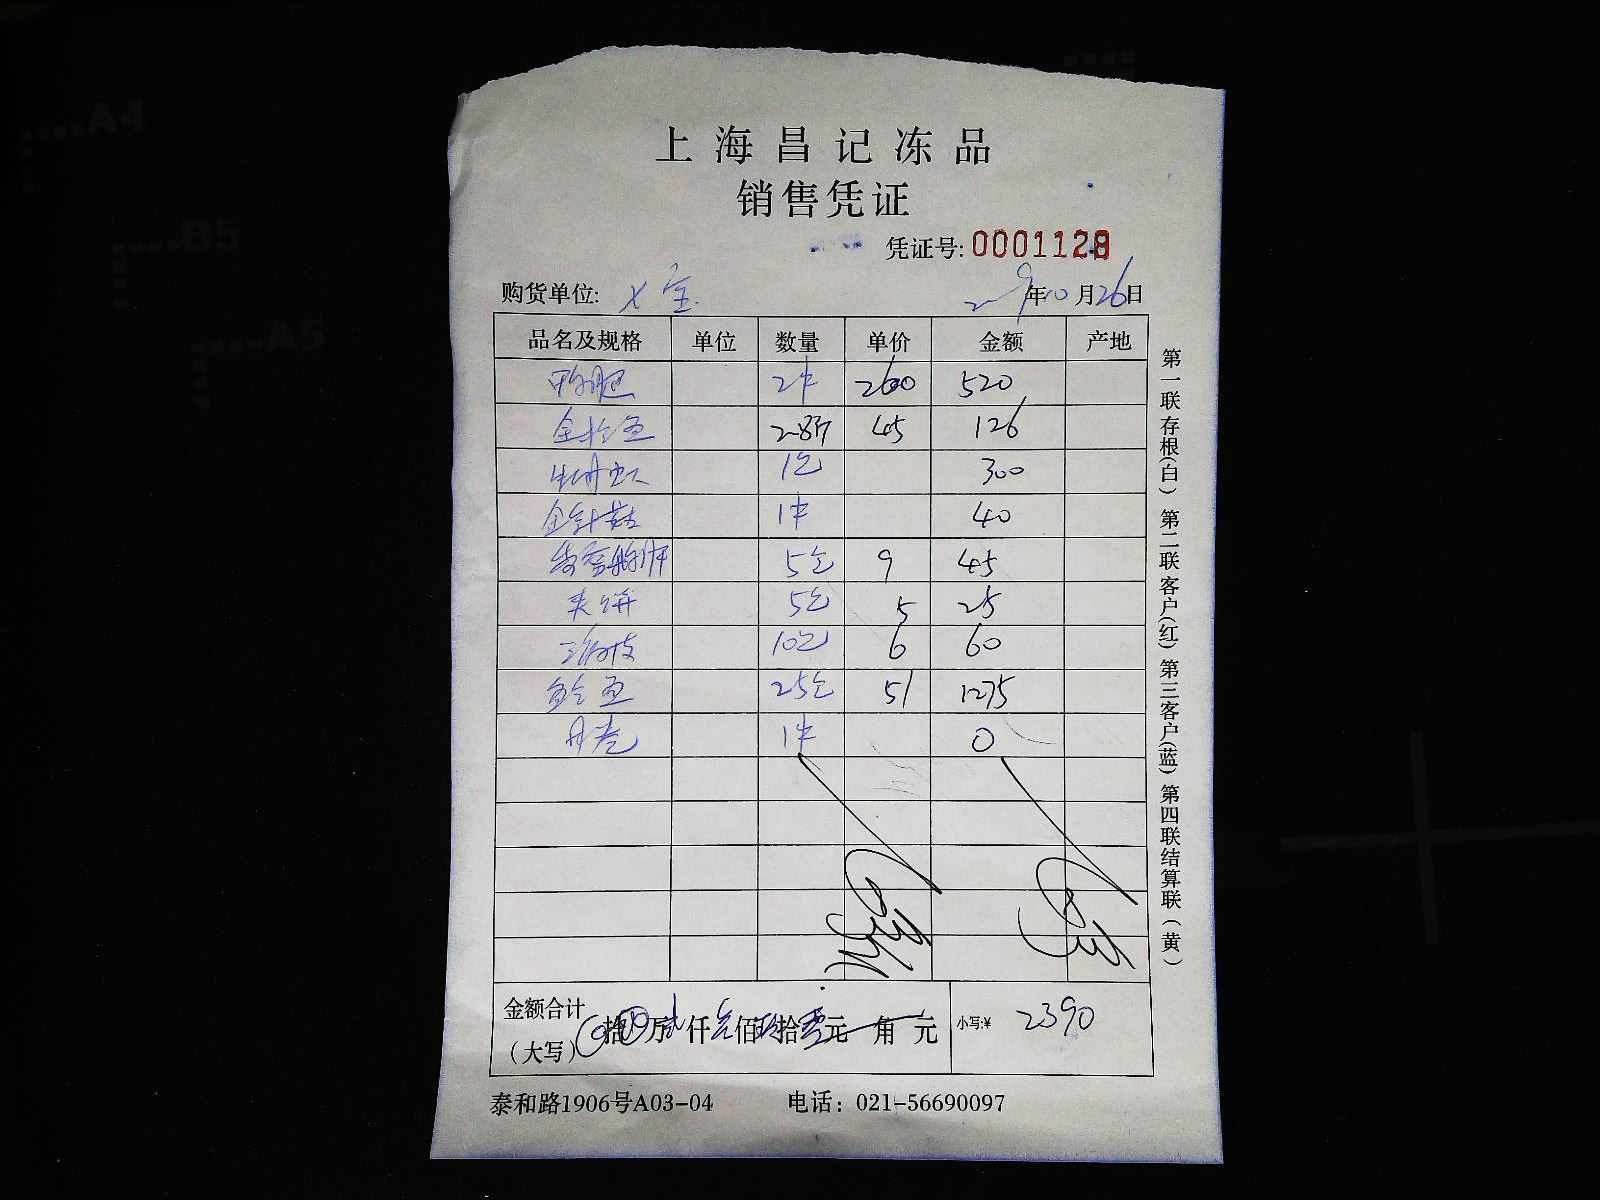 上海昌记冻品
销售凭证
凭证号: 0001128
购货单位: 年10月26日
品名及规格 单位 数量 单价 金额 产地
2件 260 520
2.8斤 45 126
1包 300
金针菇 1件 40
5包 9 45
夹饼 5包 5 25
10包 6 60
25包 51 1275
1件 0
金额合计
(大写) 拾 万贰仟叁佰玖拾零元 角 元 小写:¥ 2390
泰和路1906号A03-04 电话: 021-56690097
第一联存根(白) 第二联客户(红) 第三客户(蓝) 第四联结算联(黄)
A4
B5
A5